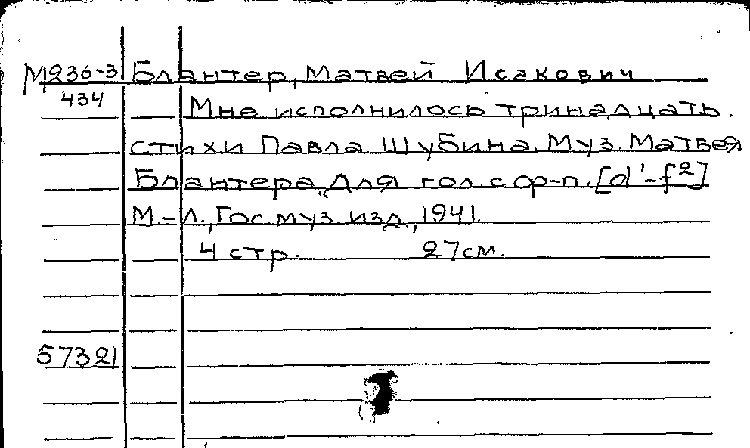 М236-3 Блантер, Матвей Исакович
434 Мне исполнилось тринадцать.
стихи Павла Шубина. Муз. Матвея
Блантера. Для гол. с ф-п. [d'-f²]
М.-Л., Гос. муз. изд., 1941.
4 стр. 27см.
57321